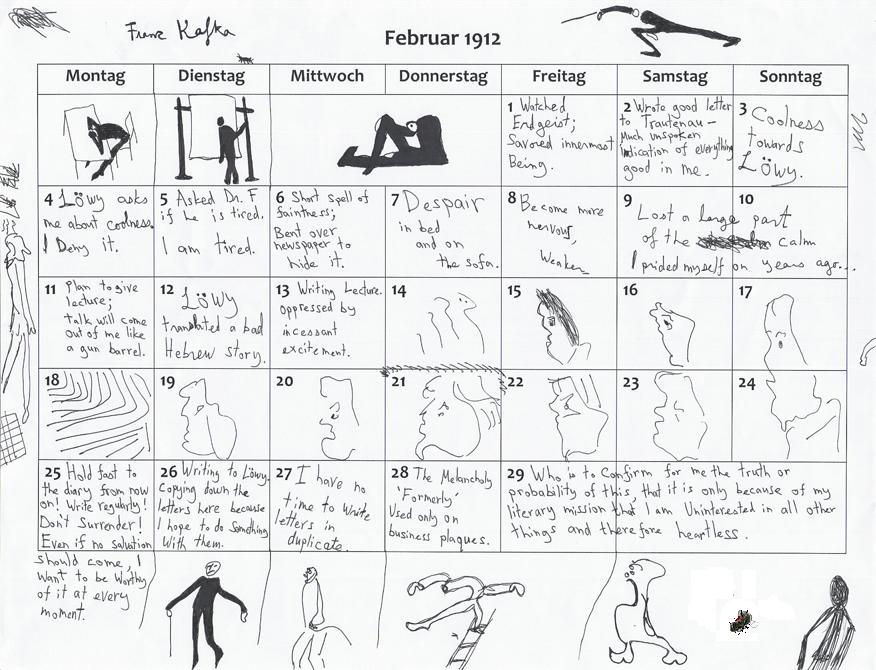 Franz Kafka
Februar 1912
Montag Dienstag Mittwoch Donnerstag Freitag Samstag Sonntag
1 Watched
Erdgeist;
Savored innermost
Being.
2 Wrote good letter
to Trautenau –
Much unspoken
indication of everything
good in me.
3 Coolness
towards
Löwy.
4 Löwy asks
me about coolness.
I Deny it.
5 Asked Dr. F
if he is tired.
I am tired.
6 Short spell of
faintness;
Bent over
newspaper to
hide it.
7 Despair
in bed
and on
the sofa.
8 Become more
nervous,
Weaker
9 10
Lost a large part
of the calm
I prided myself on years ago...
11 Plan to give
lecture;
Talk will come
out of me like
a gun barrel.
12 Löwy
translated a bad
Hebrew story.
13 Writing Lecture.
oppressed by
incessant
excitement.
14
15
16
17
18
19
20
21
22
23
24
25 Hold fast to
the diary from now
on! Write regularly!
Don't Surrender!
Even if no salvation
should come, I
want to be worthy
of it at every
moment.
26 Writing to Löwy.
Copying down the
letters here because
I hope to do something
with them.
27 I have no
time to write
letters in
duplicate.
28 The Melancholy
'Formerly'
Used only on
business plaques.
29 Who is to confirm for me the truth or
probability of this, that it is only because of my
literary mission that I am Uninterested in all other
things and therefore heartless.